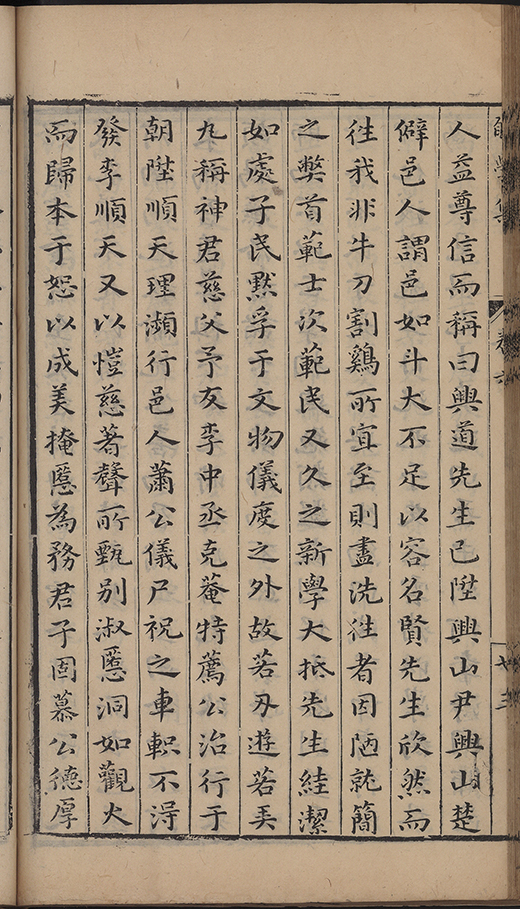 人益尊信而稱曰興道先生已陞興山尹興山楚
僻邑人謂邑如斗大不足以容名賢先生欣然而
徃我非牛刀割鷄所宜至則盡洗徃者因陋就簡
之獘首範士次範民又久之新學大抵先生絓潔
如處子民默孚于文物儀度之外故若刃遊若奕
九稱神君慈父予友李中丞克菴特薦公治行于
朝陞順天理瀕行邑人蕭公儀尸祝之車軹不淂
發李順天又以愷慈著聲所甄别淑慝洞如觀火
而歸本于恕以成美掩慝為務君子固慕公德厚
卷六